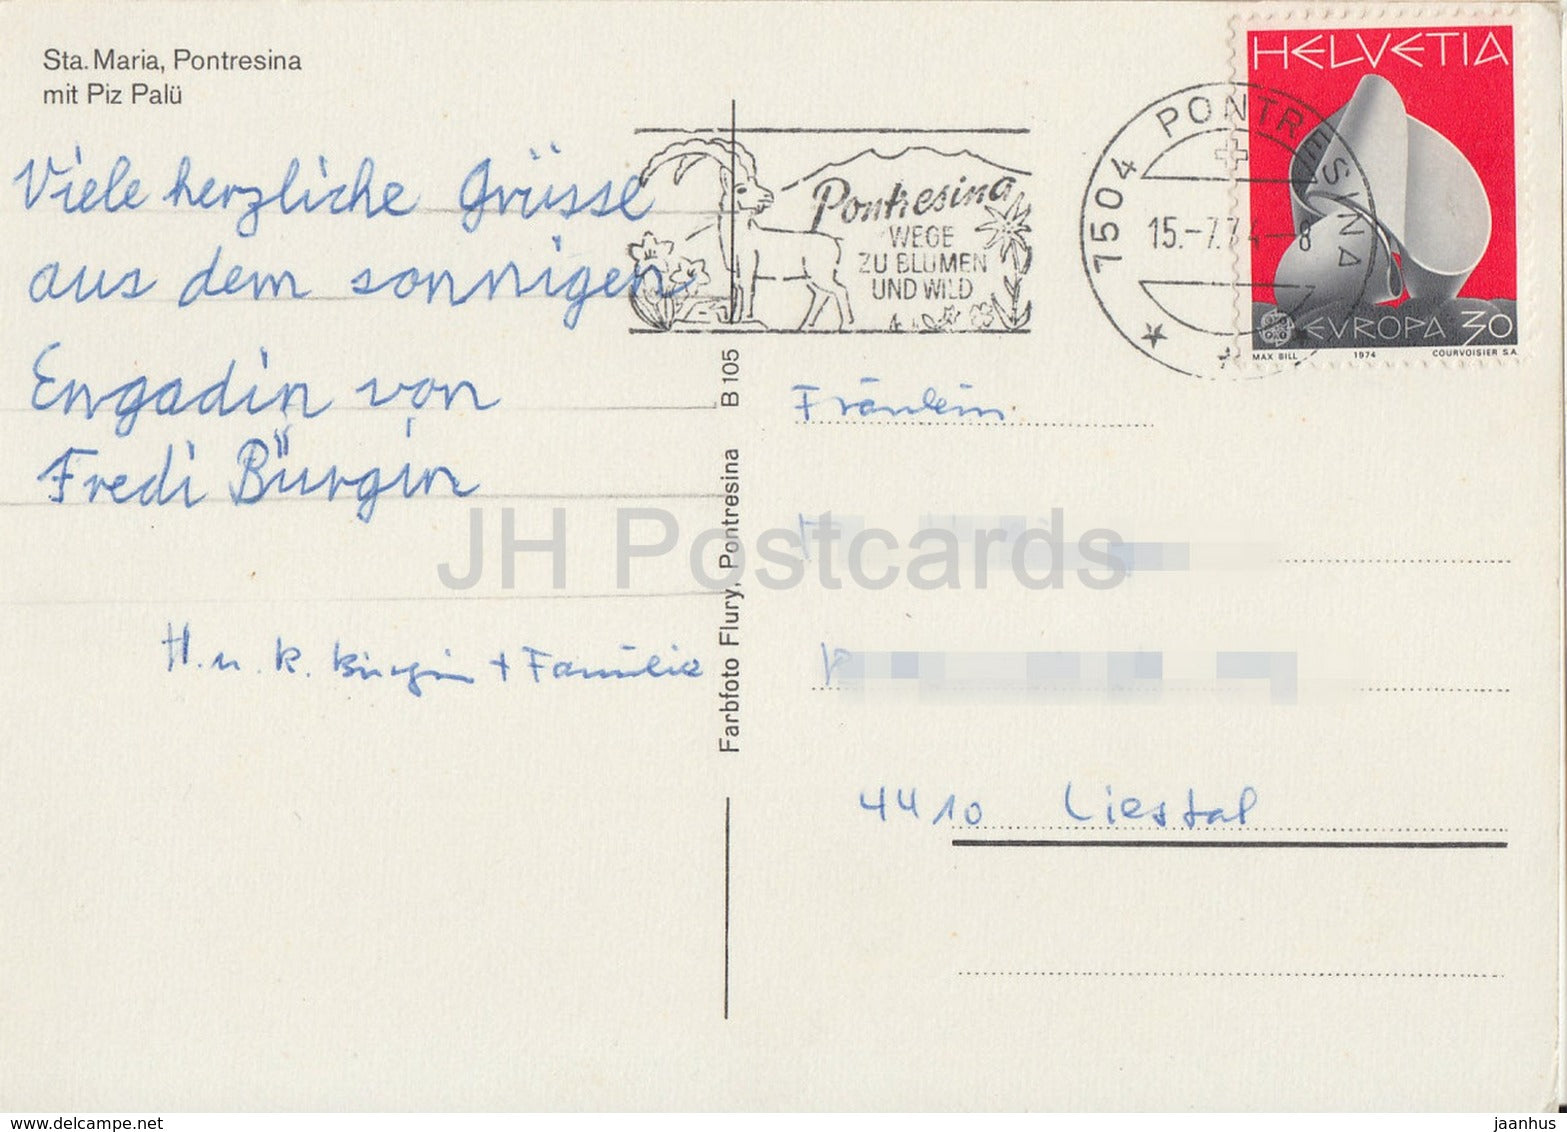 Sta. Maria, Pontresina
mit Piz Palü
Viele herzliche Grüsse
aus dem sonnigen
Engadin von
Fredi Bürgin
H. u. K. Bürgin + Familie
Farbfoto Flury, Pontresina B 105
Pontresina
WEGE
ZU BLUMEN
UND WILD
7504 PONTRESINA
15.-7.74-8
HELVETIA
EVROPA 30
MAX BILL 1974 COURVOISIER S.A.
Fräulein
4410 Liestal
JH Postcards
jaanhus